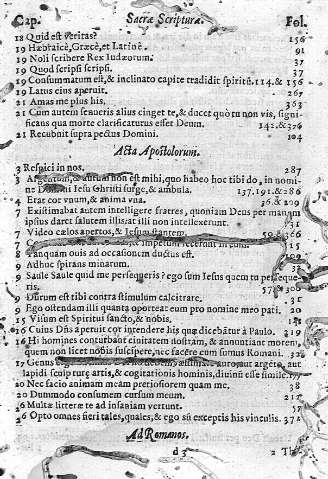 Cap. Sacræ Scripturæ. Fol.
18 Quid est veritas? 156
19 Hæbraicè, Græcè, et Latinè. 91
19 Noli scribere Rex Iudæorum.
19 Quod scripsi scripsi. 37
19 Consummatum est, & inclinato capite tradidit spiritũ. 114. & 156
19 Latus eius aperuit. 267
21 Amas me plus his. 363
21 Cum autem senueris alius cinget te, & ducet quò tu non vis, signi-
ficans qua morte clarificaturus esset Deum. 142. & 376
21 Recubuit supra pectus Domini. 104
Acta Apostolorum.
3 Respici in nos. 287
3 Argentum, & aurum non est mihi, quo habeo hoc tibi do, in nomi-
ne Domini Iesu Christi surge, & ambula. 137. 191. & 286
4 Erat cor vnum, & anima vna. 36. & 209
7 Existimabat autem intelligere fratres, quoniam Deus per manum
ipsus daret salutem illis at illi non intellexerunt. 31
7 Video cælos apertos, & Iesum stantem. 59. & 266
7
8 Tanquam ouis ad occasionem ductus est.
9 Adhuc spirans minarum.
9 Saule Saule quid me persequeris? ego sum Iesus quem tu perseque-
ris. 57. & 308
9 Durum est tibi contra stimulum calcitrare. 31
9 Ego ostendam illi quanta oporteat eum pro nomine meo pati. 20
15 Visum est Spiritui sancto, & nobis. 31
16 Cuius Dñs aperuit cor intendere his quæ dicebãtur à Paulo. 319
16 Hi homines conturbant ciuitatem nostram, & annuntiant morem,
quem non licet nobis suscipere, nec facere cum sumus Romani. 32
17 Genus ergo auro, aut argẽto, aut
lapidi sculpturæ artis, & cogitationis hominis, diuinũ esse simile.
20 Nec facio animam meam pretiosiorem quam me. 38
20 Dummodo consumem cursum meum. 217
26 Multæ litteræ te ad insaniam vertunt. 57
26 Opto omnes fieri tales, quales, & ego sũ exceptis his vinculis. 372
Ad Romanos.
d 3 2 Th